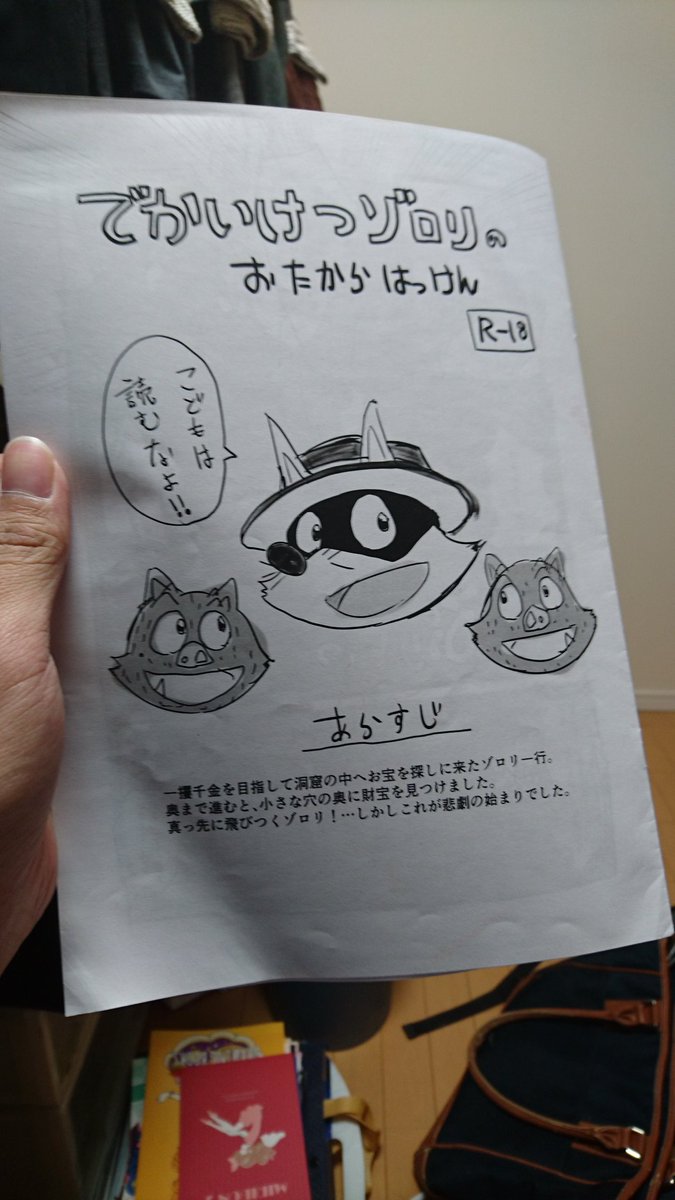 でかいけつゾロリの
おたからはっけん
R-18
こどもは
読むなよ!!
あらすじ
一攫千金を目指して洞窟の中へお宝を探しに来たゾロリ一行。
奥まで進むと、小さな穴の奥に財宝を見つけました。
真っ先に飛びつくゾロリ！…しかしこれが悲劇の始まりでした。